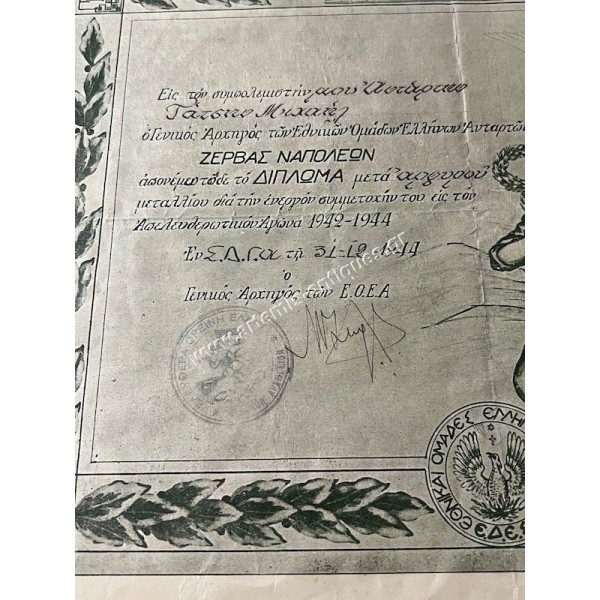 Εἰς τὸν συμπολεμιστήν μου Ἀντάρτην
Τάτσην Μιχαήλ
ὁ Γενικὸς Ἀρχηγὸς τῶν Ἐθνικῶν Ὁμάδων Ἑλλήνων Ἀνταρτῶν
ΖΕΡΒΑΣ ΝΑΠΟΛΕΩΝ
ἀπονέμω τόδε τὸ ΔΙΠΛΩΜΑ μετὰ ἀργυροῦ
μεταλλίου διὰ τὴν ἐνεργὸν συμμετοχήν του εἰς τὸν
Ἀπελευθερωτικὸν Ἀγῶνα 1942-1944
Ἐν Σ.Δ.Γα τῇ 31-12 1944
ὁ
Γενικὸς Ἀρχηγὸς τῶν Ε.Ο.Ε.Α
ΕΛΕΥΘΕΡΑ ΟΡΕΙΝΗ ΕΛΛ
ΕΘΝΙΚΑΙ ΟΜΑΔΕΣ ΕΛΛΗ
Ε.Δ.Ε.Σ
www.artemis-antiques.gr